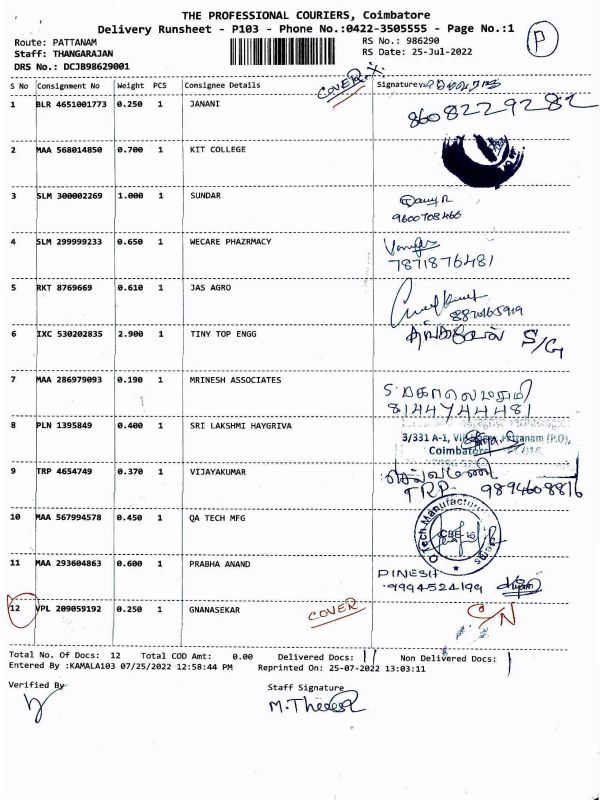 THE PROFESSIONAL COURIERS, Coimbatore
Delivery Runsheet - P103 - Phone No.:0422-3505555 - Page No.:1
P
Route: PATTANAM
RS No.: 986290
Staff: THANGARAJAN
RS Date: 25-Jul-2022
DRS No.: DCJB98629001
S No Consignment No Weight PCS Consignee Details COVER Signature
1 BLR 4651001773 0.250 1 JANANI 8608229282
2 MAA 568014850 0.700 1 KIT COLLEGE
3 SLM 300002269 1.000 1 SUNDAR
9600708466
4 SLM 299999233 0.650 1 WECARE PHAZRMACY
7871876481
5 RKT 8769669 0.610 1 JAS AGRO
8870165919
6 IXC 530202835 2.900 1 TINY TOP ENGG தங்கவேல் S/G
7 MAA 286979093 0.190 1 MRINESH ASSOCIATES
8144744481
8 PLN 1395849 0.400 1 SRI LAKSHMI HAYGRIVA
3/331 A-1, Pattanam (P.O),
Coimbatore
9 TRP 4654749 0.370 1 VIJAYAKUMAR செல்வமணி
TRP 9894608816
10 MAA 567994578 0.450 1 QA TECH MFG
Q Tech Manufacturing Systems
CBE-16
11 MAA 293604863 0.600 1 PRABHA ANAND DINESH
9994524199
12 VPL 209059192 0.250 1 GNANASEKAR COVER C/N
Total No. Of Docs: 12 Total COD Amt: 0.00 Delivered Docs: 11 Non Delivered Docs: 1
Entered By :KAMALA103 07/25/2022 12:58:44 PM Reprinted On: 25-07-2022 13:03:11
Verified By
Staff Signature